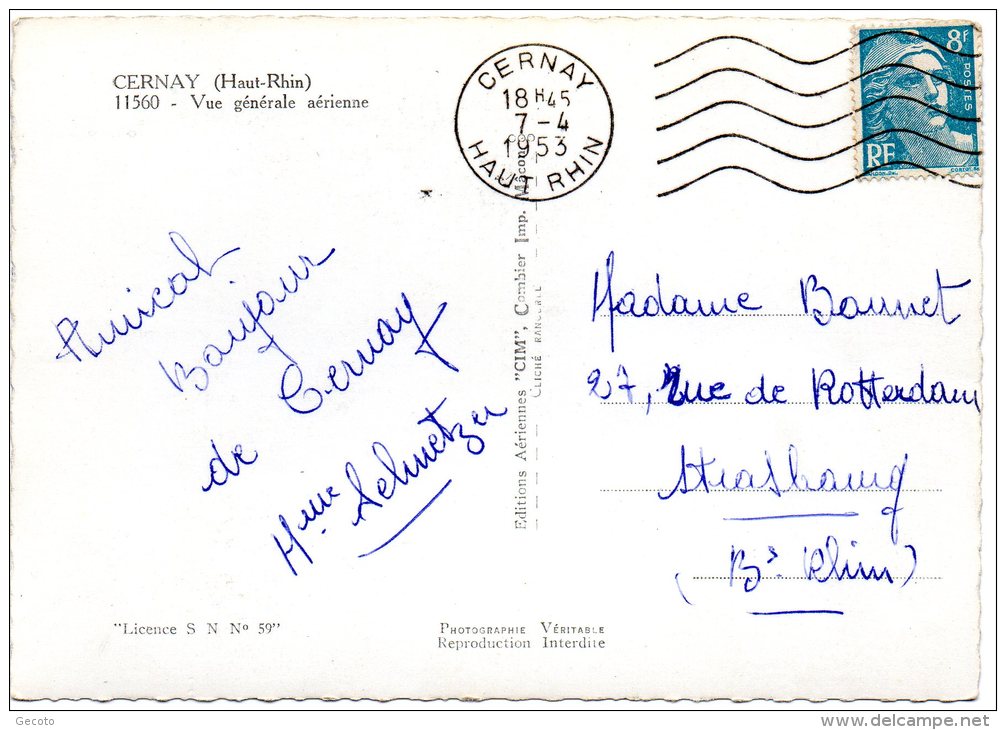 CERNAY (Haut-Rhin)
11560 - Vue générale aérienne
CERNAY
18 H 45
7 - 4
1953
HAUT RHIN
8F
POSTES
RF
Amical
Bonjour
de Cernay
Mme Schmetzer
Editions Aériennes "CIM", Combier Imp. Mâcon
CLICHÉ RANCUREL
Madame Bonnet
27, rue de Rotterdam
Strasbourg
(Bs. Rhin)
"Licence S N No 59"
PHOTOGRAPHIE VÉRITABLE
Reproduction Interdite
Gecoto
delcampe.net